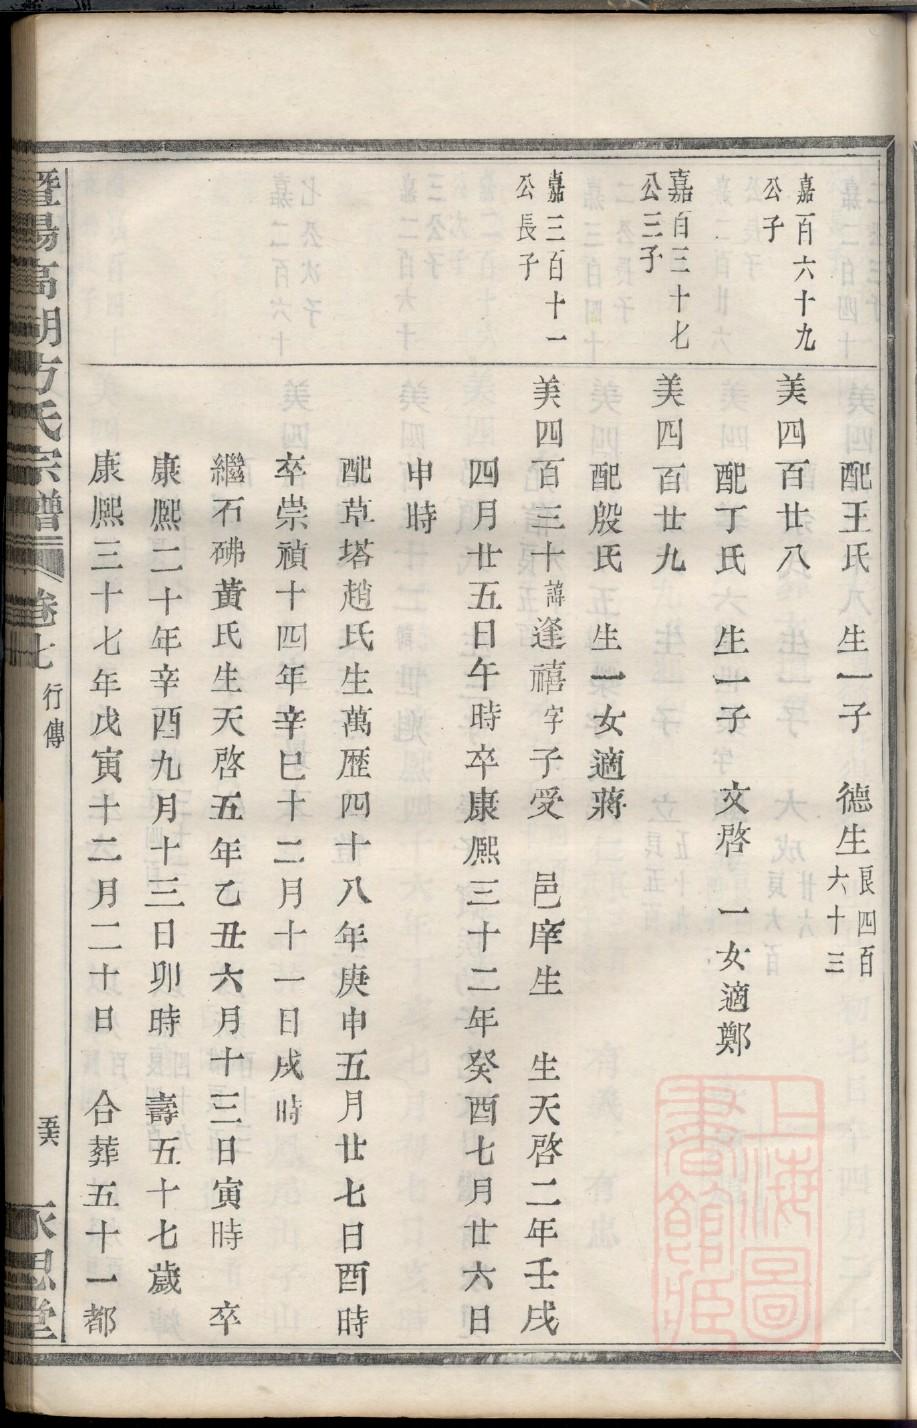 配王氏　生一子　德生　艮四百
六十三
嘉百六十九
公子
美四百廿八
配丁氏　生一子　文啓　一女適鄭
嘉百三十七
公三子
美四百廿九
配殷氏　生一女適蔣
嘉三百十一
公長子
美四百三十諱逢禧字子受　邑庠生　生天啓二年壬戌
四月廿五日午時卒康熙三十二年癸酉七月廿六日
申時
配草塔趙氏生萬歷四十八年庚申五月廿七日酉時
卒崇禎十四年辛巳十二月十一日戌時
繼石砩黃氏生天啓五年乙丑六月十三日寅時　卒
康熙二十年辛酉九月十三日卯時　壽五十七歲
康熙三十七年戊寅十二月二十日　合葬五十一都
暨陽高湖方氏宗譜
卷七
行傳
永思堂
上海圖
書館藏